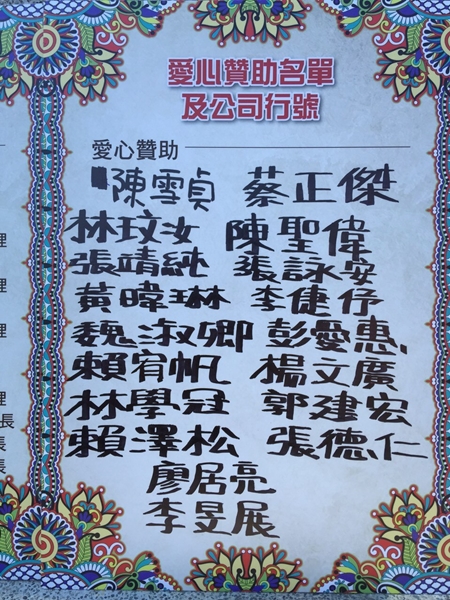 愛心贊助名單
及公司行號
愛心贊助
陳雪貞 蔡正傑
林玟汝 陳聖偉
張靖純 張詠安
黃暐琳 李倢伃
魏淑卿 彭愛惠
賴宥帆 楊文廣
林學冠 郭建宏
賴澤松 張德仁
廖居亮
李昱展
理
理
理
理
長
長
長